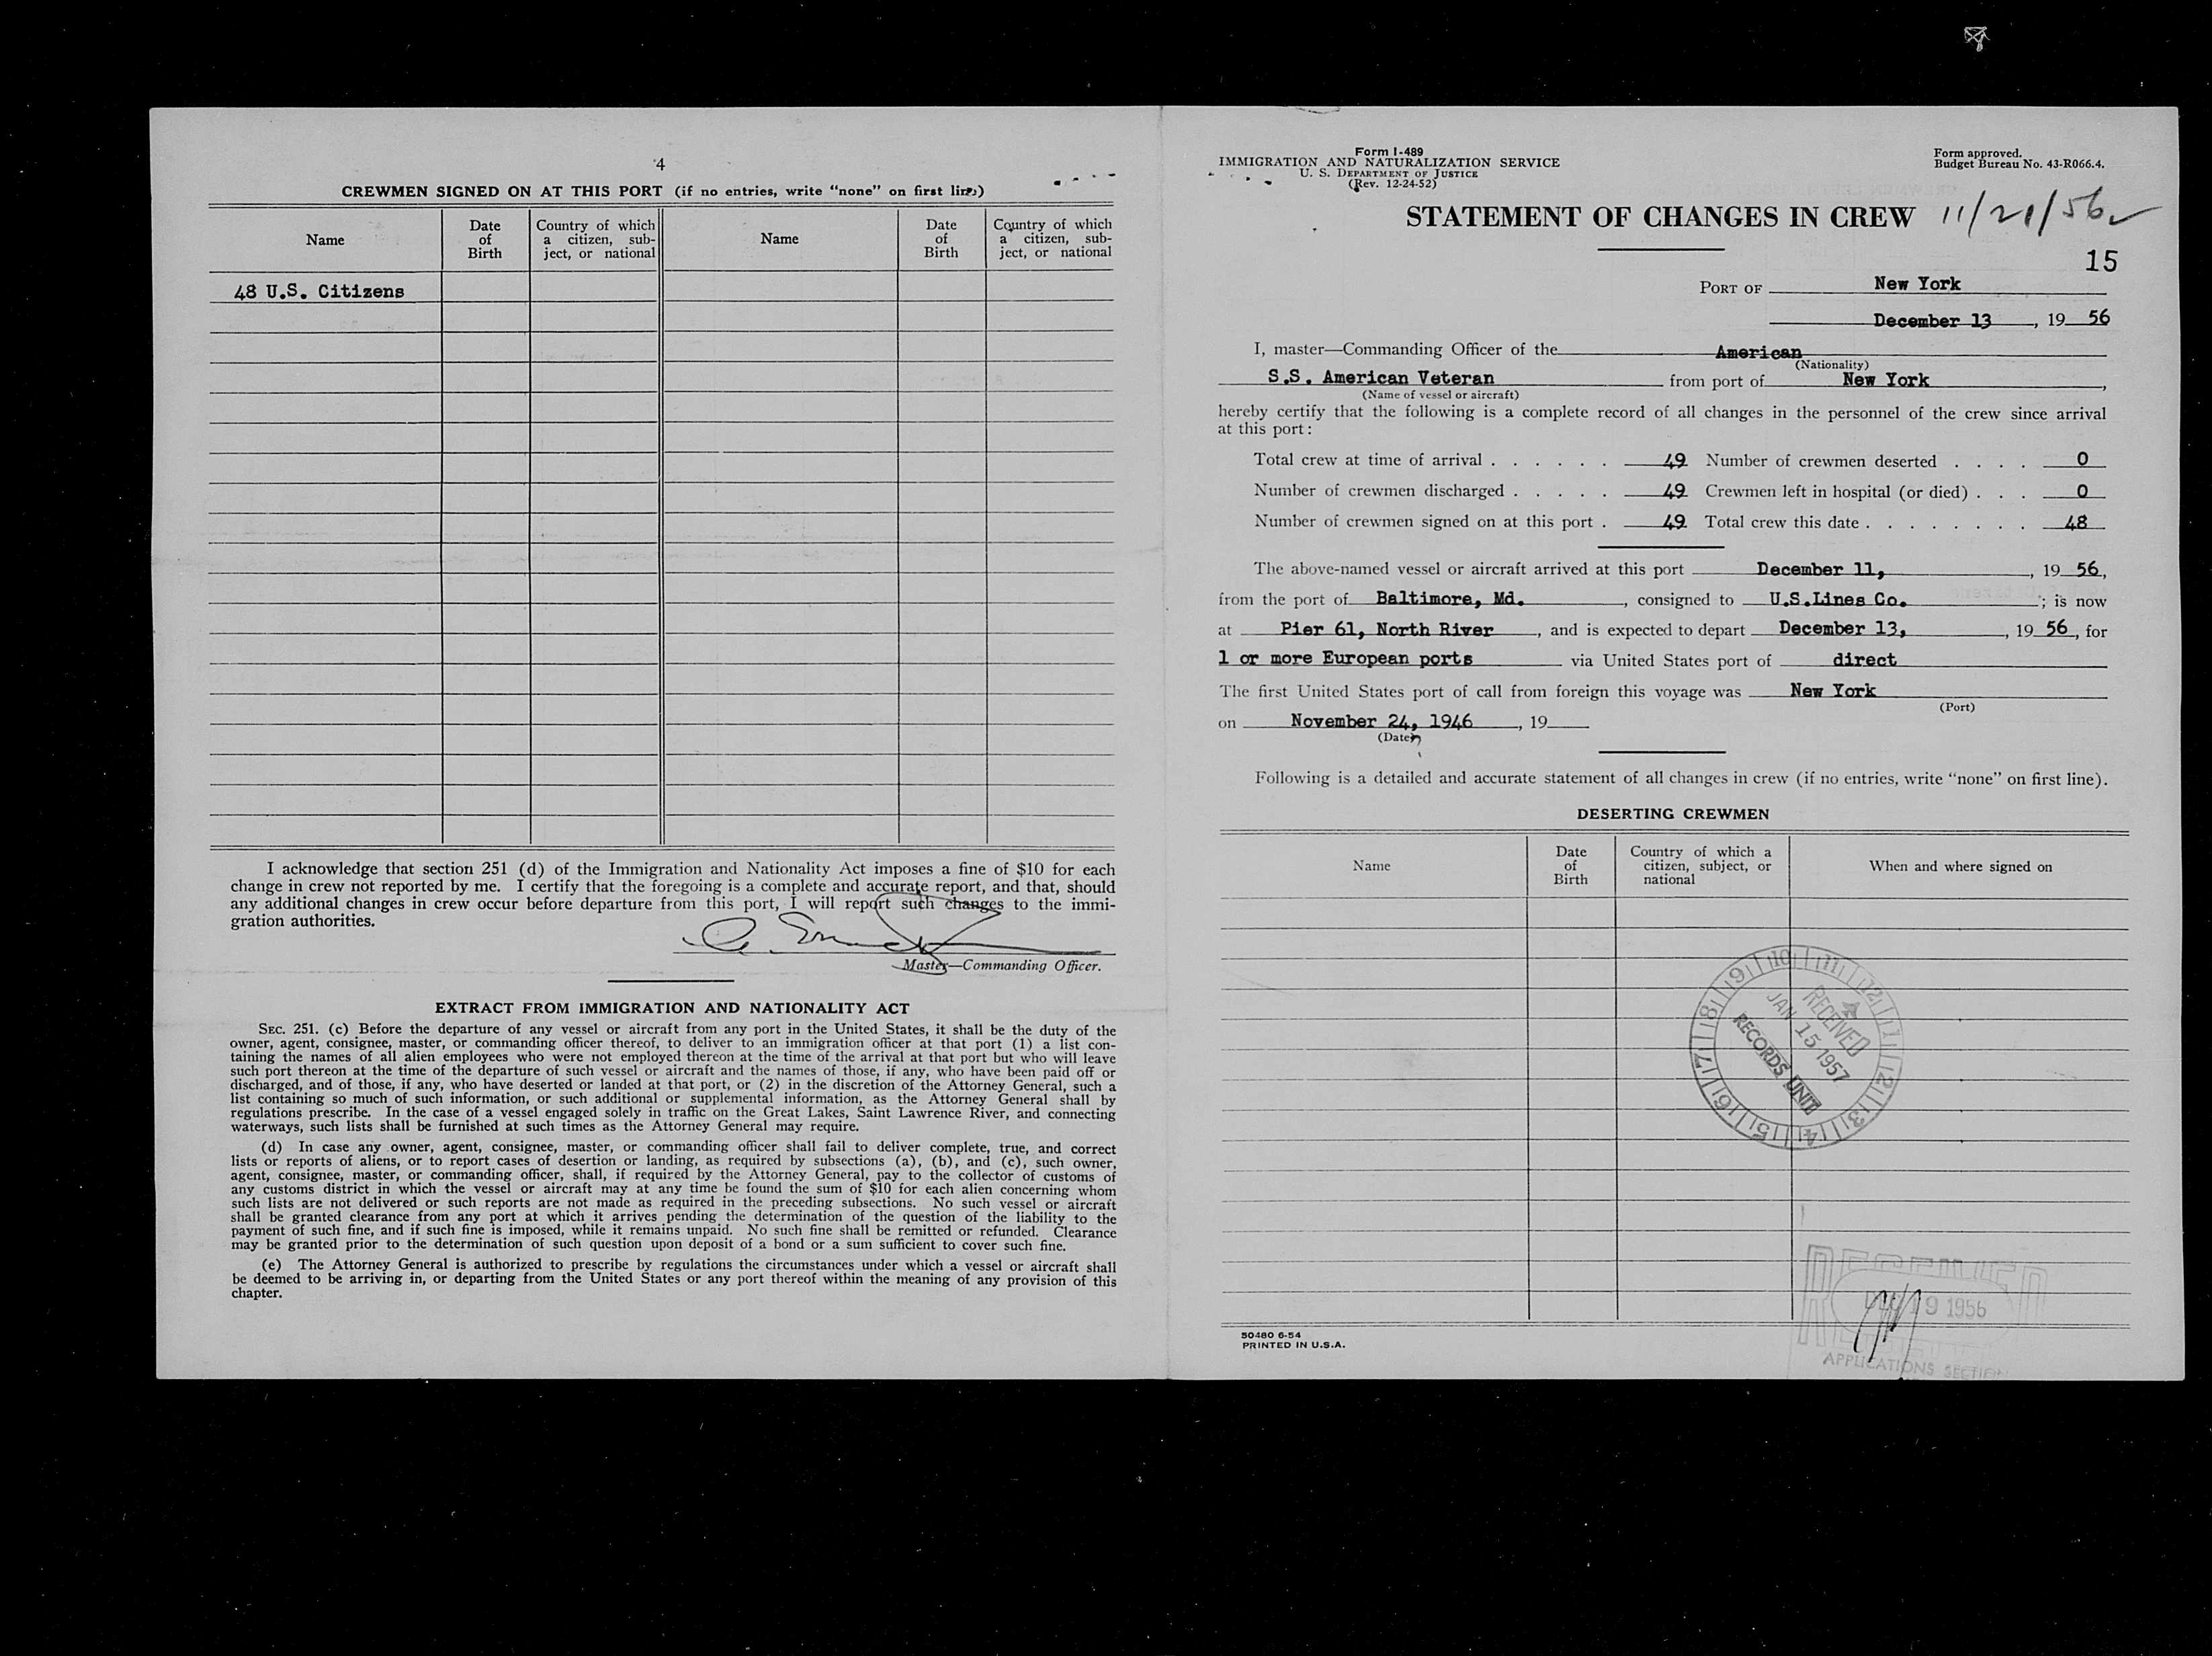 4
CREWMEN SIGNED ON AT THIS PORT (if no entries, write "none" on first line)
Name
Date of Birth
Country of which a citizen, subject, or national
Name
Date of Birth
Country of which a citizen, subject, or national
48 U.S. Citizens
I acknowledge that section 251 (d) of the Immigration and Nationality Act imposes a fine of $10 for each
change in crew not reported by me. I certify that the foregoing is a complete and accurate report, and that, should
any additional changes in crew occur before departure from this port, I will report such changes to the immi-
gration authorities.
Master—Commanding Officer.
EXTRACT FROM IMMIGRATION AND NATIONALITY ACT
SEC. 251. (c) Before the departure of any vessel or aircraft from any port in the United States, it shall be the duty of the
owner, agent, consignee, master, or commanding officer thereof, to deliver to an immigration officer at that port (1) a list con-
taining the names of all alien employees who were not employed thereon at the time of the arrival at that port but who will leave
such port thereon at the time of the departure of such vessel or aircraft and the names of those, if any, who have been paid off or
discharged, and of those, if any, who have deserted or landed at that port, or (2) in the discretion of the Attorney General, such a
list containing so much of such information, or such additional or supplemental information, as the Attorney General shall by
regulations prescribe. In the case of a vessel engaged solely in traffic on the Great Lakes, Saint Lawrence River, and connecting
waterways, such lists shall be furnished at such times as the Attorney General may require.
(d) In case any owner, agent, consignee, master, or commanding officer shall fail to deliver complete, true, and correct
lists or reports of aliens, or to report cases of desertion or landing, as required by subsections (a), (b), and (c), such owner,
agent, consignee, master, or commanding officer, shall, if required by the Attorney General, pay to the collector of customs of
any customs district in which the vessel or aircraft may at any time be found the sum of $10 for each alien concerning whom
such lists are not delivered or such reports are not made as required in the preceding subsections. No such vessel or aircraft
shall be granted clearance from any port at which it arrives pending the determination of the question of the liability to the
payment of such fine, and if such fine is imposed, while it remains unpaid. No such fine shall be remitted or refunded. Clearance
may be granted prior to the determination of such question upon deposit of a bond or a sum sufficient to cover such fine.
(e) The Attorney General is authorized to prescribe by regulations the circumstances under which a vessel or aircraft shall
be deemed to be arriving in, or departing from the United States or any port thereof within the meaning of any provision of this
chapter.
Form I-489
IMMIGRATION AND NATURALIZATION SERVICE
U. S. DEPARTMENT OF JUSTICE
(Rev. 12-24-52)
Form approved.
Budget Bureau No. 43-R066.4.
STATEMENT OF CHANGES IN CREW 11/21/56
15
PORT OF New York
December 13, 19 56
I, master—Commanding Officer of the American
(Nationality)
S.S. American Veteran from port of New York,
(Name of vessel or aircraft)
hereby certify that the following is a complete record of all changes in the personnel of the crew since arrival
at this port:
Total crew at time of arrival . . . . . . 49 Number of crewmen deserted . . . . 0
Number of crewmen discharged . . . . . 49 Crewmen left in hospital (or died) . . . 0
Number of crewmen signed on at this port . 49 Total crew this date . . . . . . . . 48
The above-named vessel or aircraft arrived at this port December 11, , 19 56,
from the port of Baltimore, Md. , consigned to U.S.Lines Co. ; is now
at Pier 61, North River , and is expected to depart December 13, , 19 56, for
1 or more European ports via United States port of direct
The first United States port of call from foreign this voyage was New York
(Port)
on November 24, 1946 , 19
(Date)
Following is a detailed and accurate statement of all changes in crew (if no entries, write "none" on first line).
DESERTING CREWMEN
Name
Date of Birth
Country of which a citizen, subject, or national
When and where signed on
10 11 12 1 2 3 4 5 6 7 8 9
RECEIVED
JAN 15 1957
RECORDS UNIT
RECEIVED
DEC 19 1956
APPLICATIONS SECTION
50480 6-54
PRINTED IN U.S.A.